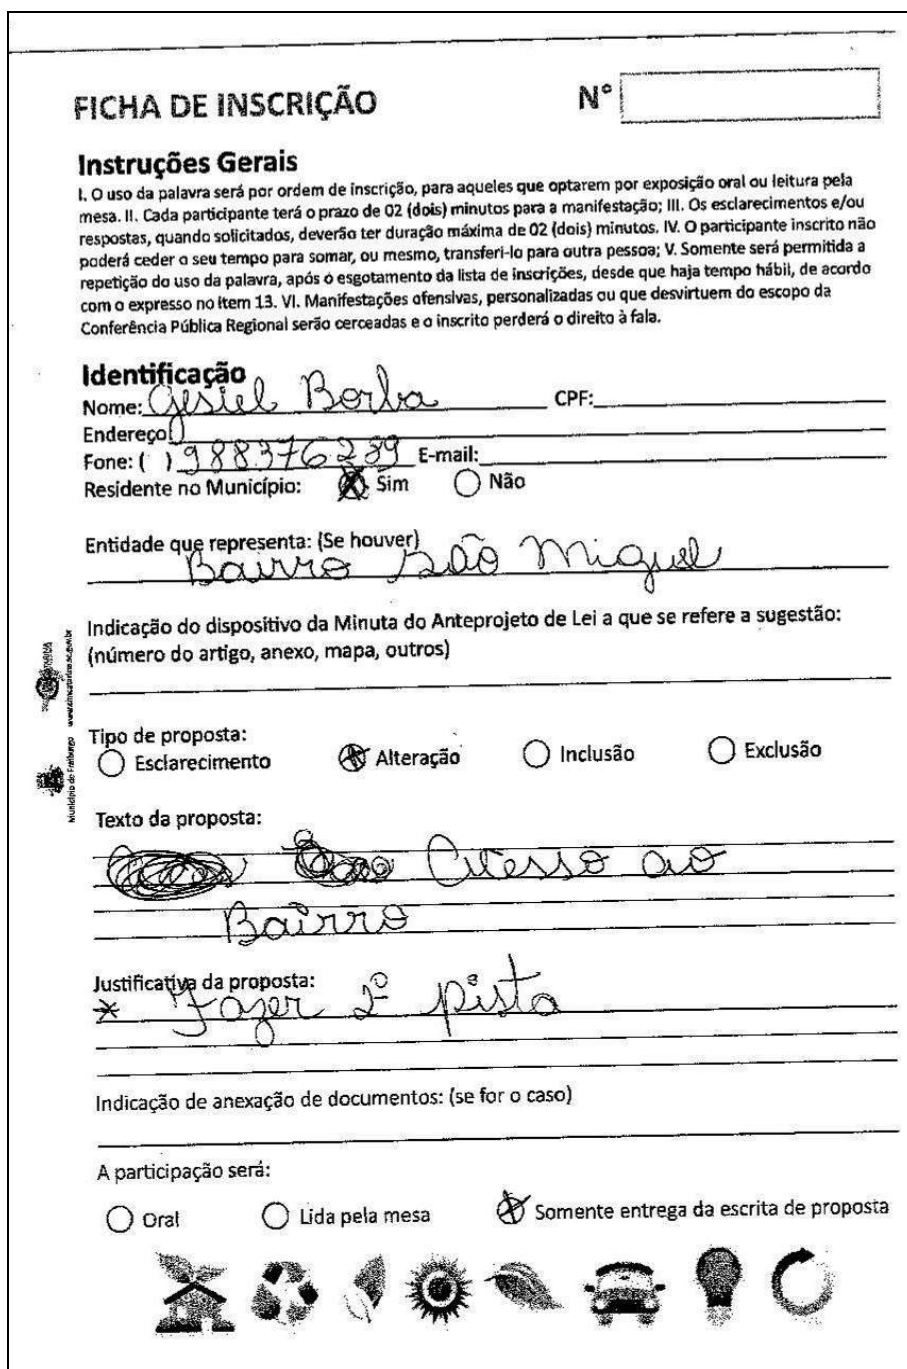 FICHA DE INSCRIÇÃO
N°
Instruções Gerais
I. O uso da palavra será por ordem de inscrição, para aqueles que optarem por exposição oral ou leitura pela
mesa. II. Cada participante terá o prazo de 02 (dois) minutos para a manifestação; III. Os esclarecimentos e/ou
respostas, quando solicitados, deverão ter duração máxima de 02 (dois) minutos. IV. O participante inscrito não
poderá ceder o seu tempo para somar, ou mesmo, transferi-lo para outra pessoa; V. Somente será permitida a
repetição do uso da palavra, após o esgotamento da lista de inscrições, desde que haja tempo hábil, de acordo
com o expresso no item 13. VI. Manifestações ofensivas, personalizadas ou que desvirtuem do escopo da
Conferência Pública Regional serão cerceadas e o inscrito perderá o direito à fala.
Identificação
Nome: Gesiel Borba CPF:
Endereço
Fone: ( ) 988376239 E-mail:
Residente no Município: Sim Não
Entidade que representa: (Se houver)
Bairro São Miguel
Indicação do dispositivo da Minuta do Anteprojeto de Lei a que se refere a sugestão:
(número do artigo, anexo, mapa, outros)
Município de Fraiburgo
Tipo de proposta:
Esclarecimento Alteração Inclusão Exclusão
Texto da proposta:
Acesso ao
Bairro
Justificativa da proposta:
* Fazer 2ª pista
Indicação de anexação de documentos: (se for o caso)
A participação será:
Oral Lida pela mesa Somente entrega da escrita de proposta